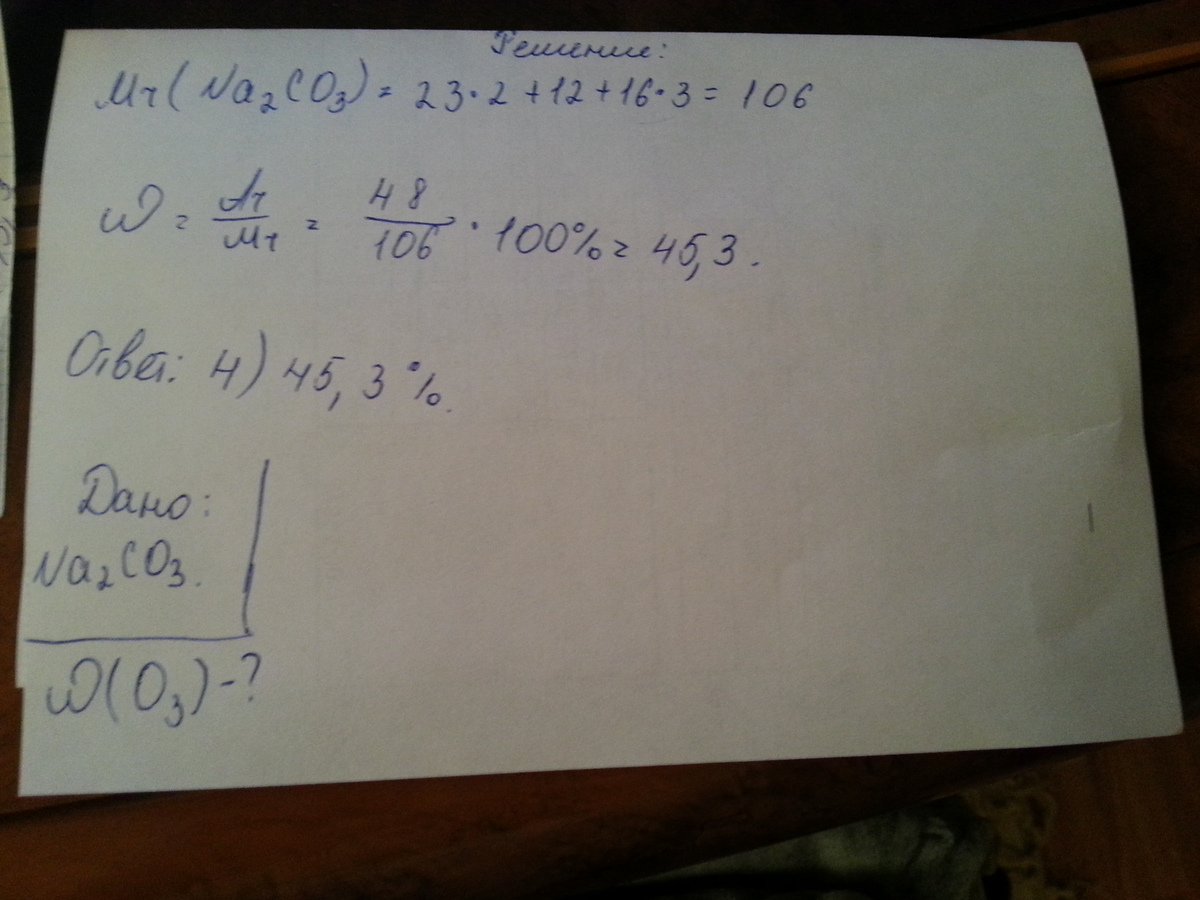 Решение:
Mr(Na₂CO₃) = 23·2+12+16·3 = 106
ω = Ar/Mr = 48/106 · 100% = 45,3.
Ответ: 4) 45,3%.
Дано:
Na₂CO₃.
ω(O₃)-?